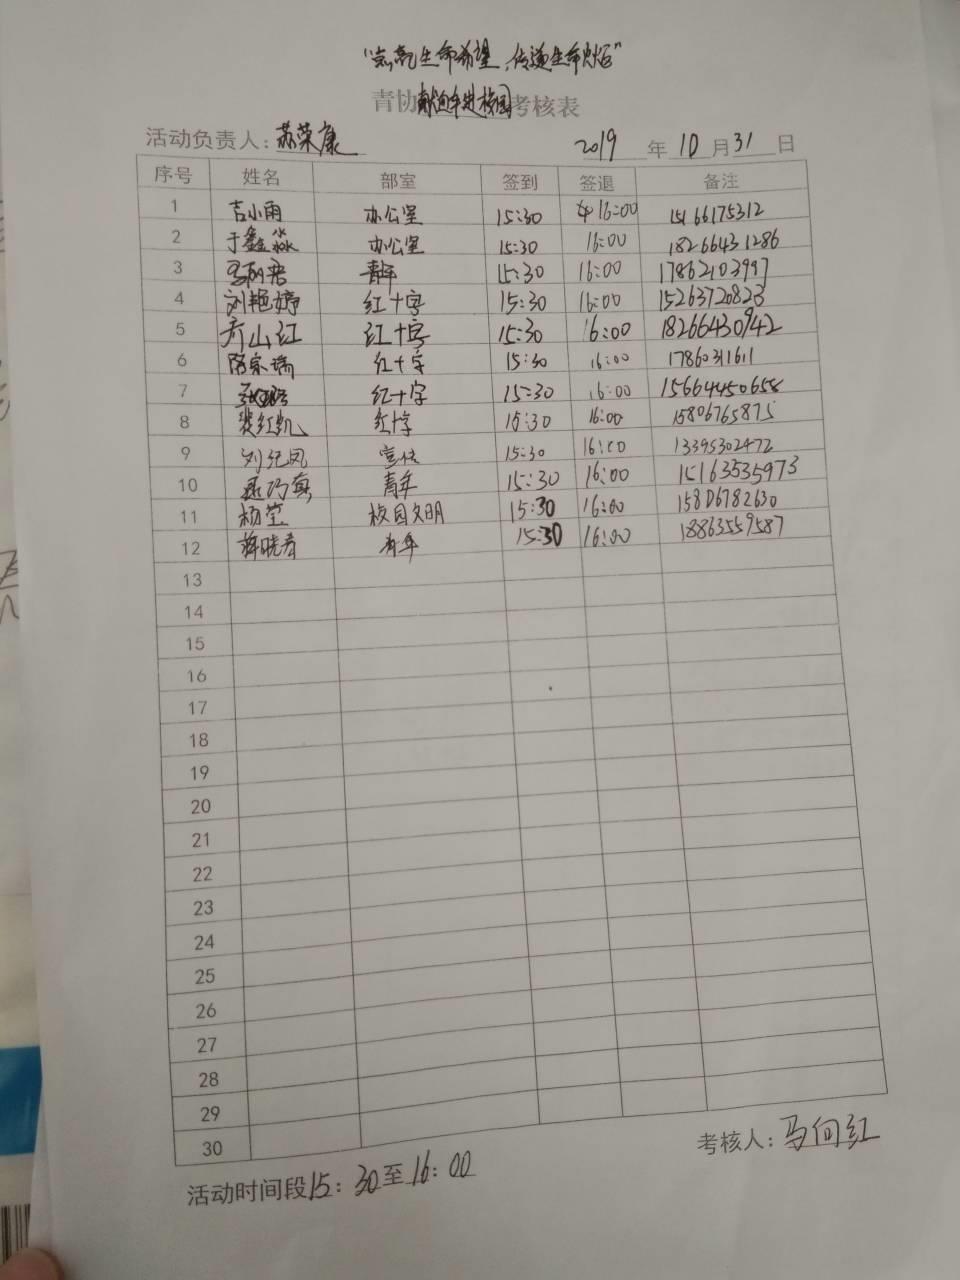 "点亮生命希望,传递生命火焰"
青协献血车进校园考核表
活动负责人:苏荣康 2019年10月31日
序号 姓名 部室 签到 签退 备注
1 吉小雨 办公室 15:30 16:00 15166175312
2 于鑫淼 办公室 15:30 16:00 18266431286
3 青年 15:30 16:00 17862103997
4 刘艳婷 红十字 15:30 16:00 15263720823
5 齐山红 红十字 15:30 16:00 18266430942
6 陈宗瑞 红十字 15:30 16:00 17860311611
7 红十字 15:30 16:00 15664450658
8 裴红凯 红十字 15:30 16:00 15806765875
9 刘纪凤 宣传 15:30 16:00 13395302472
10 青年 15:30 16:00 15163535973
11 杨莹 校园文明 15:30 16:00 15806782630
12 蒋晓春 青年 15:30 16:00 18863559587
13
14
15
16
17
18
19
20
21
22
23
24
25
26
27
28
29
30
考核人:马向红
活动时间段15:30至16:00